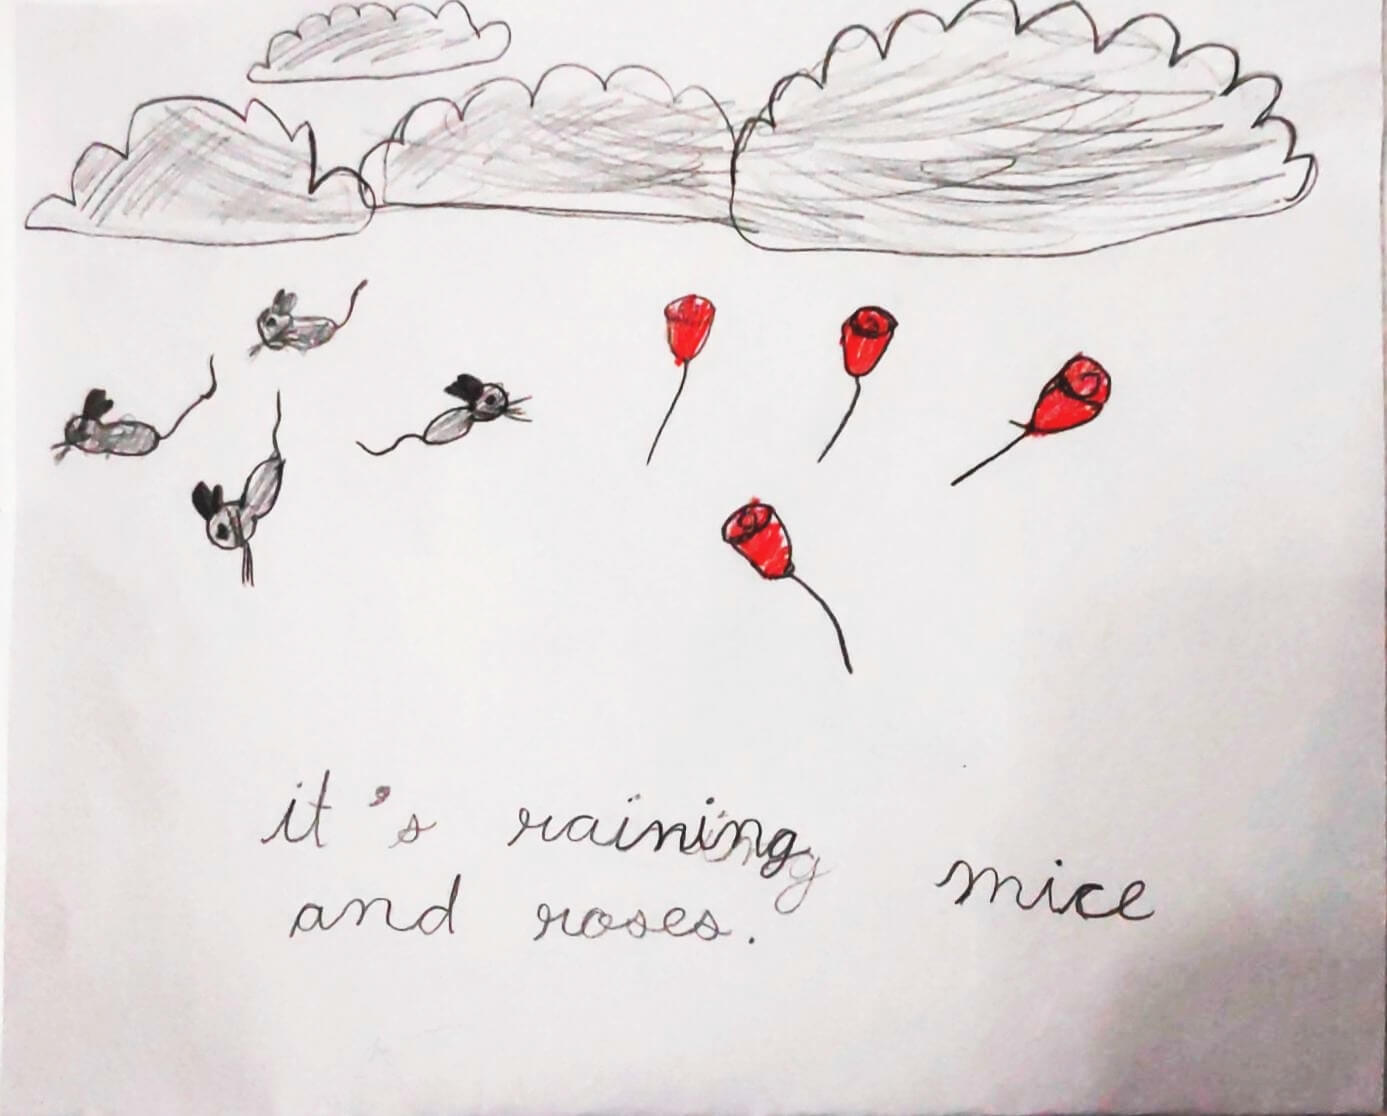 it's raining mice
and roses.